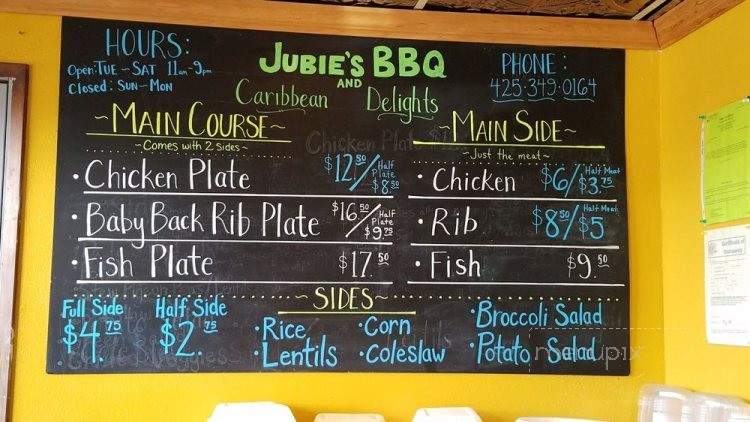 HOURS:
Open: TUE - SAT 11am-9pm
Closed: SUN - MON
JUBIE'S BBQ
AND
Caribbean Delights
PHONE:
425·349·0164
~MAIN COURSE~
~Comes with 2 sides~
·Chicken Plate $12.50/Half Plate $8.50
·Baby Back Rib Plate $16.50/Half Plate $9.75
·Fish Plate $17.50
~MAIN SIDE~
~Just the meat~
·Chicken $6/Half Meat $3.75
·Rib $8.50/Half Meat $5
·Fish $9.50
~SIDES~
Full Side Half Side
$4.75 $2.75
·Rice ·Corn ·Broccoli Salad
·Lentils ·Coleslaw ·Potato Salad